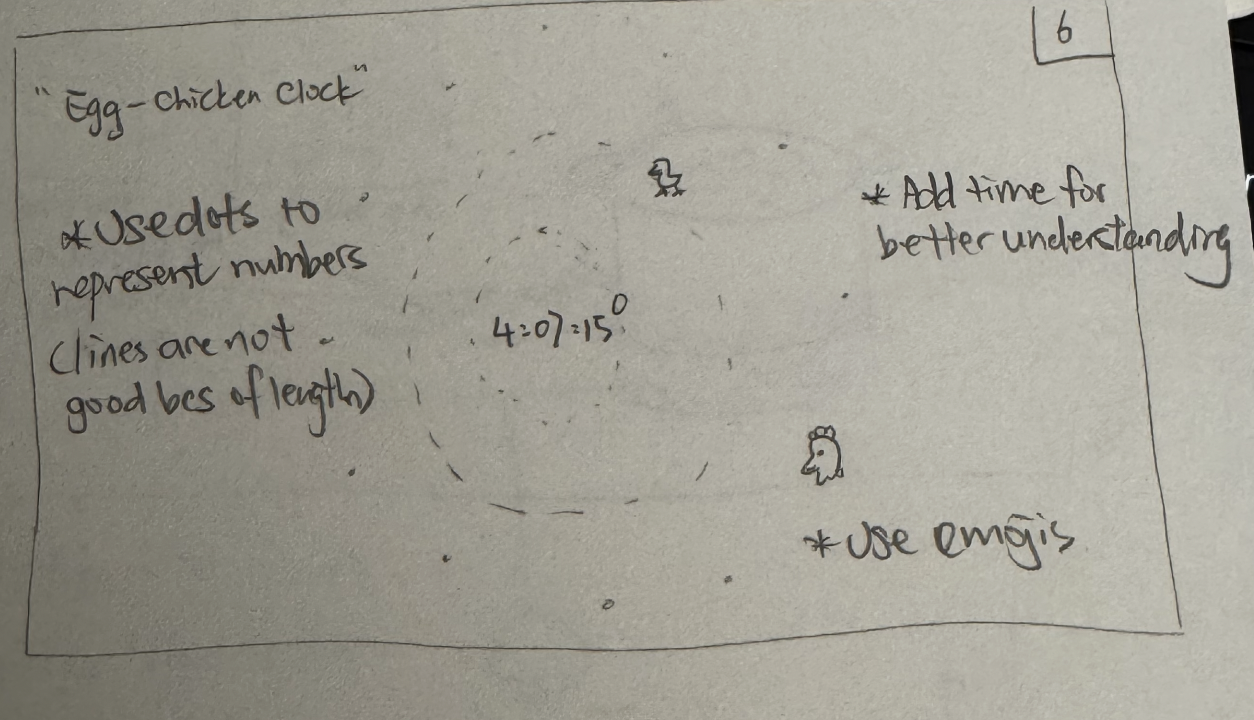 6
"Egg-Chicken Clock"
*Use dots to
represent numbers
(lines are not
good bcs of length)
4:07:15
* Add time for
better understanding
*Use emojis